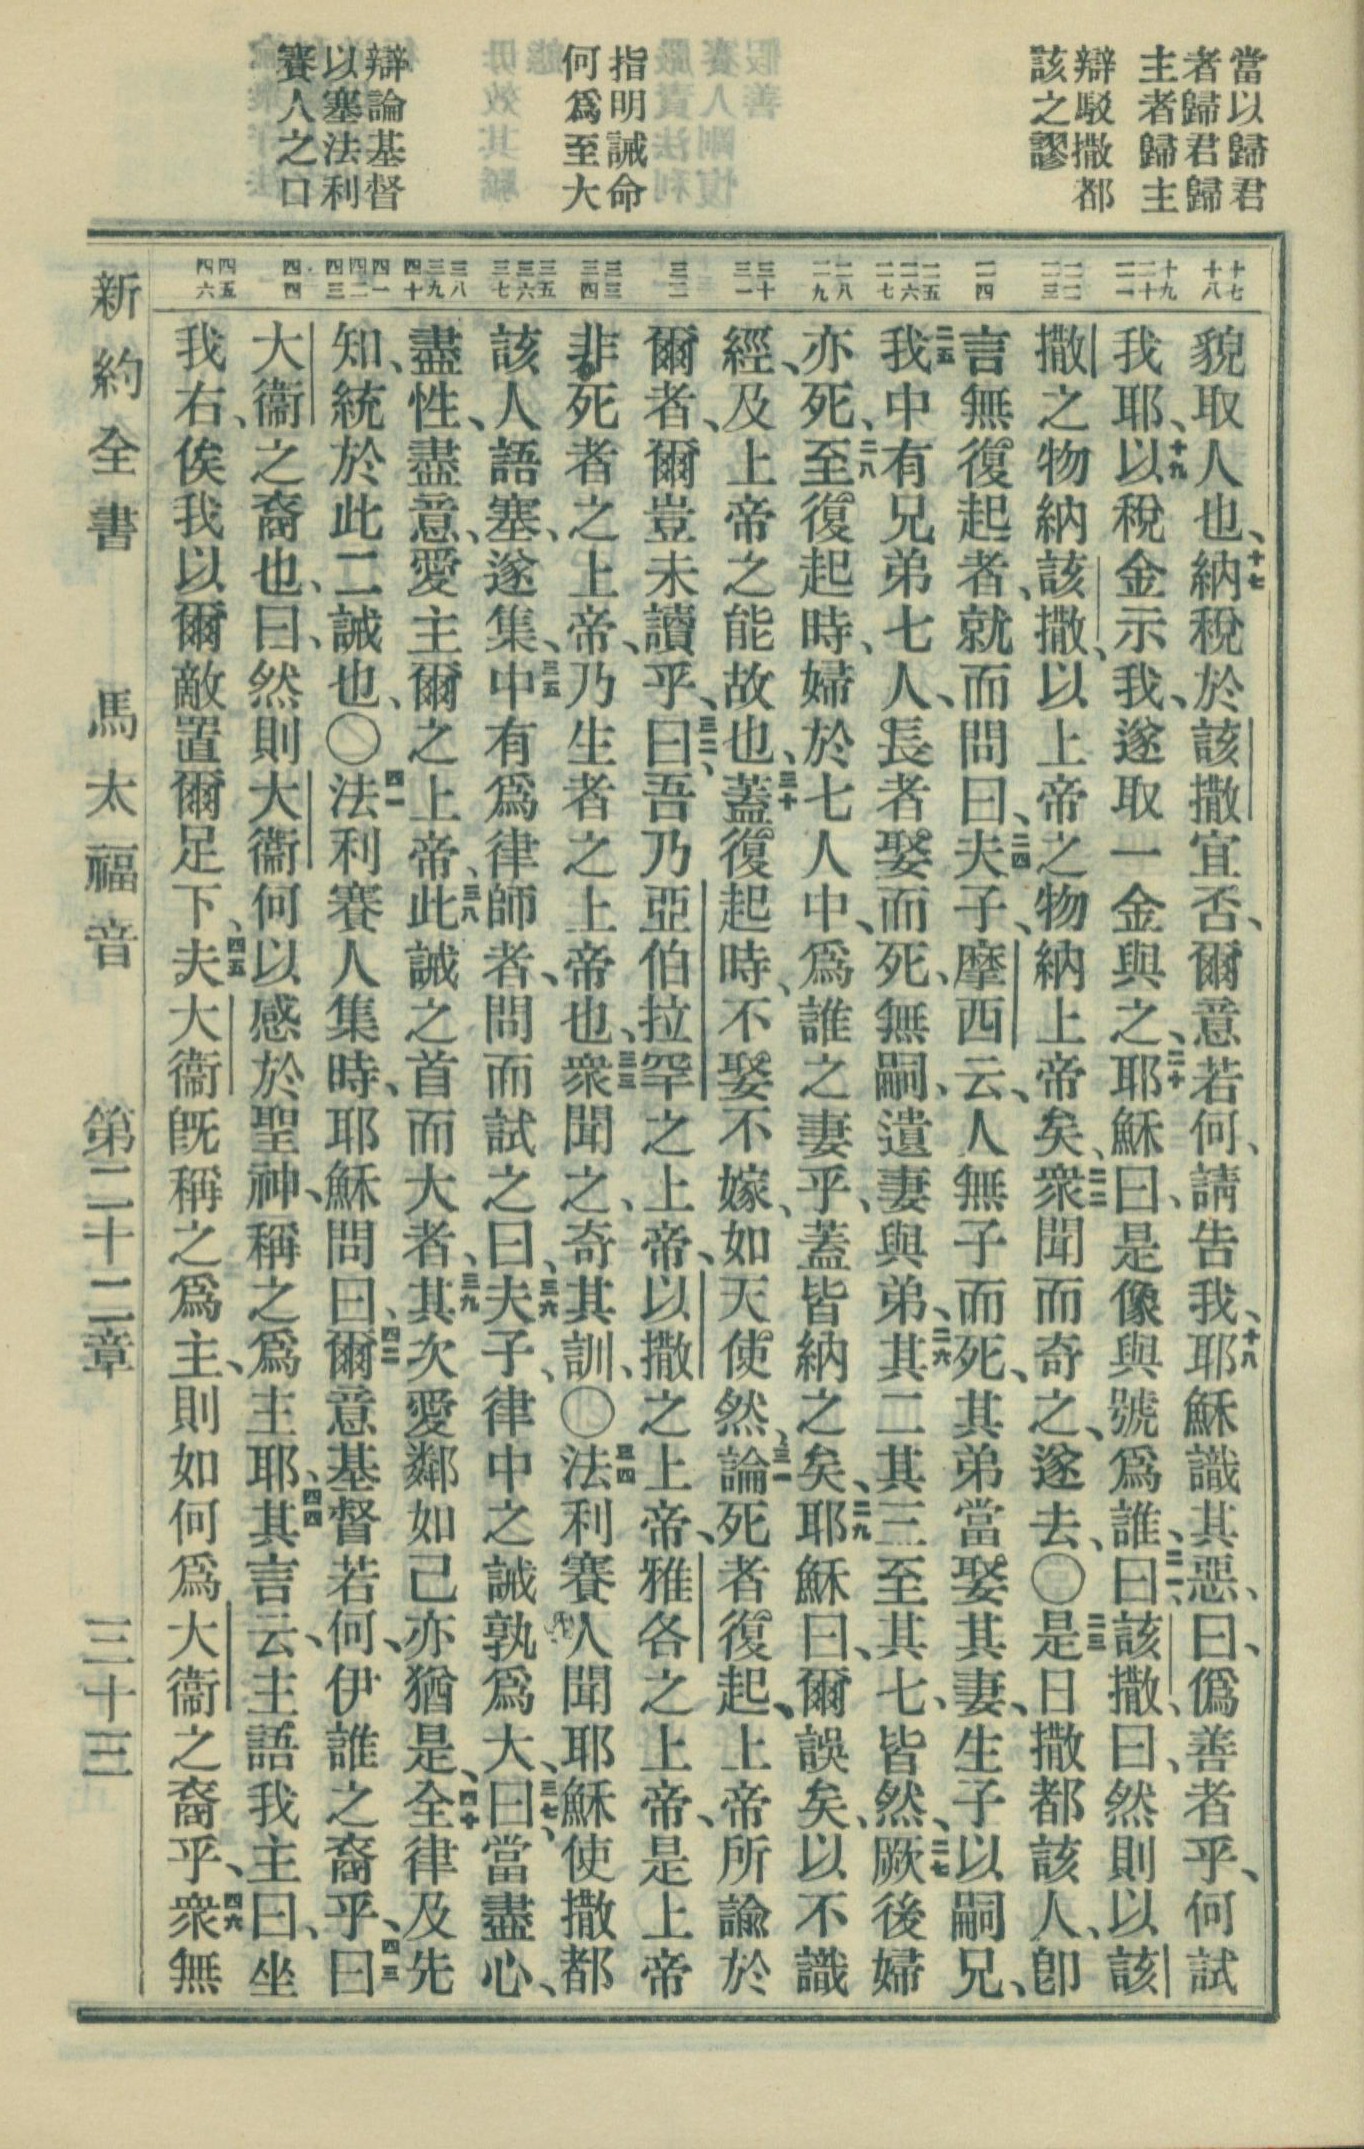 當以歸君
者歸君歸
主者歸主
辯駁撒都
該之謬
指明誡命
何爲至大
辯論基督
以塞法利
賽人之口
十七 十八
十九 二十 二一
二二 二三
二四
二五 二六 二七
二八 二九
三十 三一
三二
三三 三四
三五 三六 三七
三八 三九 四十
四一 四二 四三
四四
四五 四六
貌取人也、十七納稅於該撒宜否、爾意若何、請告我、十八耶穌識其惡、曰、僞善者乎、何試
我耶、十九以稅金示我、遂取一金與之、二十耶穌曰、是像與號爲誰、二一曰、該撒、曰、然則以該
撒之物納該撒、以上帝之物納上帝矣、二二衆聞而奇之、遂去、〇二三是日撒都該人、卽
言無復起者、就而問曰、二四夫子、摩西云、人無子而死、其弟當娶其妻、生子以嗣兄、
二五我中有兄弟七人、長者娶而死、無嗣、遺妻與弟、二六其二其三至其七、皆然、二七厥後婦
亦死、二八至復起時、婦於七人中、爲誰之妻乎、蓋皆納之矣、二九耶穌曰、爾誤矣、以不識
經、及上帝之能故也、三十蓋復起時、不娶不嫁、如天使然、三一論死者復起、上帝所諭於
爾者、爾豈未讀乎、三二曰、吾乃亞伯拉罕之上帝、以撒之上帝、雅各之上帝、是上帝
非死者之上帝、乃生者之上帝也、三三衆聞之、奇其訓、〇三四法利賽人聞耶穌使撒都
該人語塞、遂集、三五中有爲律師者、問而試之曰、三六夫子、律中之誡孰爲大、三七曰、當盡心、
盡性、盡意、愛主爾之上帝、三八此誡之首而大者、三九其次愛鄰如己亦猶是、四十全律及先
知、統於此二誡也、〇四一法利賽人集時、耶穌問曰、四二爾意基督若何、伊誰之裔乎、四三曰
大衞之裔也、曰、然則大衞何以感於聖神、稱之爲主耶、四四其言云、主語我主曰、坐
我右、俟我以爾敵置爾足下、四五夫大衞旣稱之爲主、則如何爲大衞之裔乎、四六衆無
新約全書 馬太福音 第二十二章 三十三